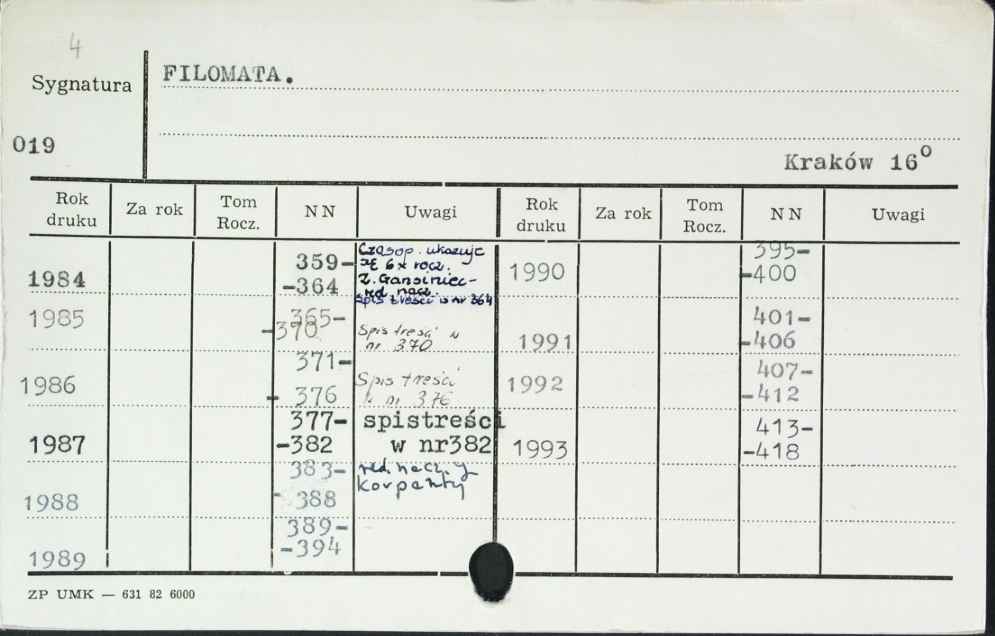 4
Sygnatura
FILOMATA.
019
Kraków 16⁰
Rok druku Za rok Tom Rocz. NN Uwagi Rok druku Za rok Tom Rocz. NN Uwagi
1984 359- -364 Czasop. ukazuje
się 6 x rocz.
Z. Gansiniec-
red. nacz.
spis treści w nr 364
1990 395- -400
1985 365- -370 Spis treści w
nr 370
1991 401- -406
1986 371- - 376 Spis treści
w nr 376
1992 407- -412
1987 377- -382 spistreści
w nr382
1993 413- -418
1988 383- - 388 red. nacz. J
Korpanty
1989 389- -394
ZP UMK — 631 82 6000